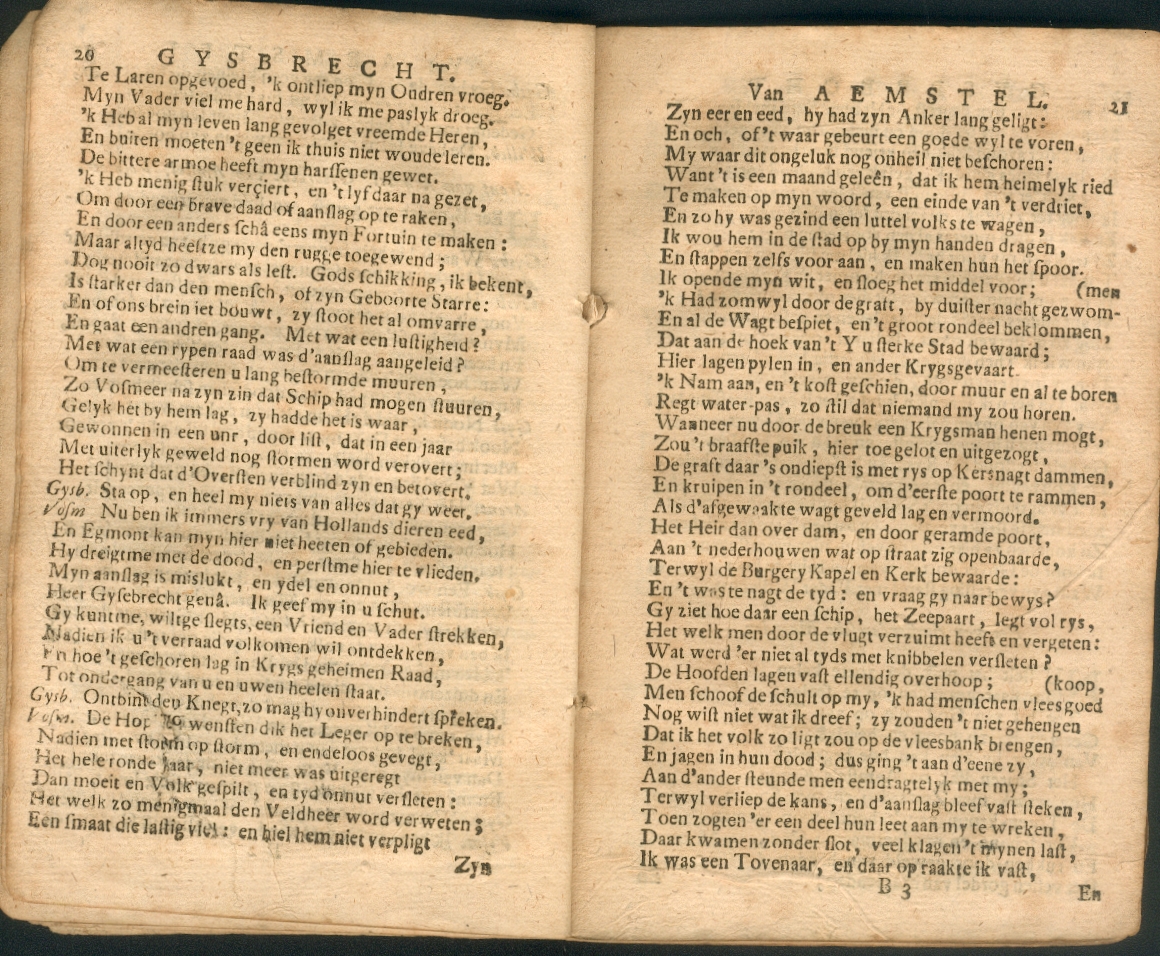 20 GYSBRECHT.
Te Laren opgevoed, 'k ontliep myn Oudren vroeg.
Myn Vader viel me hard, wyl ik me paslyk droeg.
'k Heb al myn leven lang gevolget vreemde Heren,
En buiten moeten 't geen ik thuis niet woude leren.
De bittere armoe heeft myn harssenen gewet.
'k Heb menig stuk verçiert, en 't lyf daar na gezet,
Om door een brave daad of aanslag op te raken,
En door een anders schâ eens myn Fortuin te maken:
Maar altyd heeftze my den rugge toegewend;
Dog nooit zo dwars als lest. Gods schikking, ik bekent,
Is starker dan den mensch, of zyn Geboorte Starre:
En of ons brein iet bouwt, zy stoot het al omvarre,
En gaat een andren gang. Met wat een lustigheid?
Met wat een rypen raad was d'aanslag aangeleid?
Om te vermeesteren u lang bestormde muuren,
Zo Vosmeer na zyn zin dat Schip had mogen stuuren,
Gelyk het by hem lag, zy hadde het is waar,
Gewonnen in een uur, door list, dat in een jaar
Met uiterlyk geweld nog stormen word verovert;
Het schynt dat d'Oversten verblind zyn en betovert.
Gysb. Sta op, en heel my niets van alles dat gy weet.
Vosm Nu ben ik immers vry van Hollands dieren eed,
En Egmont kan myn hier niet heeten of gebieden.
Hy dreigtme met de dood, en perstme hier te vlieden.
Myn aanslag is mislukt, en ydel en onnut,
Heer Gysebrecht genâ. Ik geef my in u schut.
Gy kuntme, wiltge slegts, een Vriend en Vader strekken,
Nadien ik u 't verraad volkomen wil ontdekken,
En hoe 't geschoren lag in Krygs geheimen Raad,
Tot ondergang van u en uwen heelen staat.
Gysb. Ontbint den Knegt, zo mag hy onverhindert spreken.
Vosm. De Hop zo wensten dik het Leger op te breken,
Nadien met storm op storm, en endeloos gevegt,
Het hele ronde jaar, niet meer was uitgeregt
Dan moeit en Volk gespilt, en tyd onnut versleten:
Het welk zo menigmaal den Veldheer word verweten;
Een smaat die lastig viel: en hiel hem niet verpligt
Zyn
Van AEMSTEL. 21
Zyn eer en eed, hy had zyn Anker lang geligt:
En och, of 't waar gebeurt een goede wyl te voren,
My waar dit ongeluk nog onheil niet beschoren:
Want 't is een maand geleên, dat ik hem heimelyk ried
Te maken op myn woord, een einde van 't verdriet,
En zo hy was gezind een luttel volks te wagen,
Ik wou hem in de stad op by myn handen dragen,
En stappen zelfs voor aan, en maken hun het spoor.
Ik opende myn wit, en sloeg het middel voor; (men
'k Had zomwyl door de graft, by duister nacht gezwom-
En al de Wagt bespiet, en 't groot rondeel beklommen,
Dat aan de hoek van 't Y u sterke Stad bewaard;
Hier lagen pylen in, en ander Krygsgevaart.
'k Nam aan, en 't kost geschien, door muur en al te boren
Regt water-pas, zo stil dat niemand my zou horen.
Wanneer nu door de breuk een Krygsman henen mogt,
Zou 't braafste puik, hier toe gelot en uitgezogt,
De graft daar 's ondiepst is met rys op Kersnagt dammen,
En kruipen in 't rondeel, om d'eerste poort te rammen,
Als d'afgewaakte wagt geveld lag en vermoord.
Het Heir dan over dam, en door geramde poort,
Aan 't nederhouwen wat op straat zig openbaarde,
Terwyl de Burgery Kapel en Kerk bewaarde:
En 't was te nagt de tyd: en vraag gy naar bewys?
Gy ziet hoe daar een schip, het Zeepaart, legt vol rys,
Het welk men door de vlugt verzuimt heeft en vergeten:
Wat werd 'er niet al tyds met knibbelen versleten?
De Hoofden lagen vast ellendig overhoop; (koop,
Men schoof de schult op my, 'k had menschen vlees goed
Nog wist niet wat ik dreef; zy zouden 't niet gehengen
Dat ik het volk zo ligt zou op de vleesbank brengen,
En jagen in hun dood; dus ging 't aan d'eene zy,
Aan d'ander steunde men eendragtelyk met my;
Terwyl verliep de kans, en d'aanslag bleef vast steken,
Toen zogten 'er een deel hun leet aan my te wreken,
Daar kwamen zonder slot, veel klagen 't mynen last,
Ik was een Tovenaar, en daar op raakte ik vast,
B 3 En